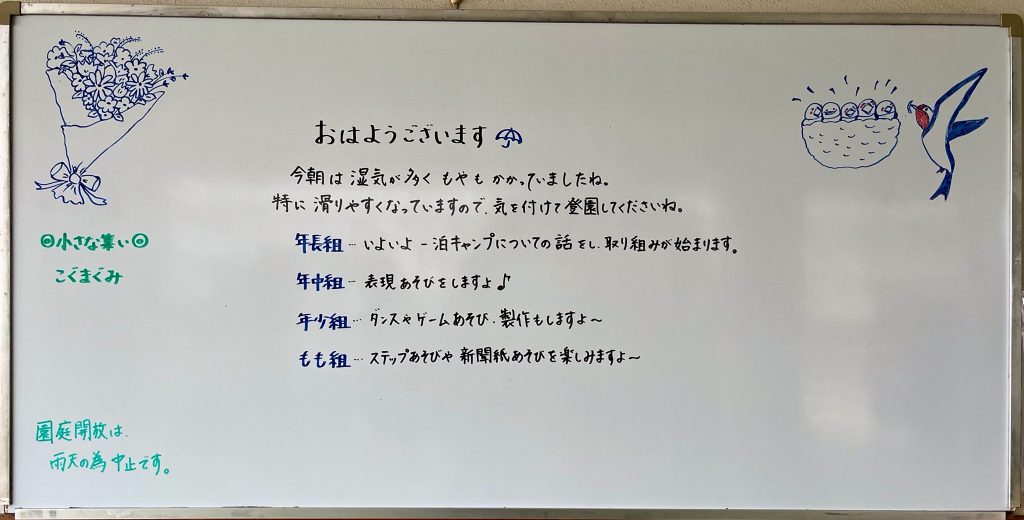 おはようございます
今朝は湿気が多くもやもかかっていましたね。
特に滑りやすくなっていますので、気を付けて登園してくださいね。
年長組…いよいよ一泊キャンプについての話をし、取り組みが始まります。
年中組…表現あそびをしますよ♪
年少組…ダンスやゲームあそび、製作もしますよ～
もも組…ステップあそびや新聞紙あそびを楽しみますよ～
◎小さな集い◎
こぐまぐみ
園庭開放は、
雨天の為中止です。